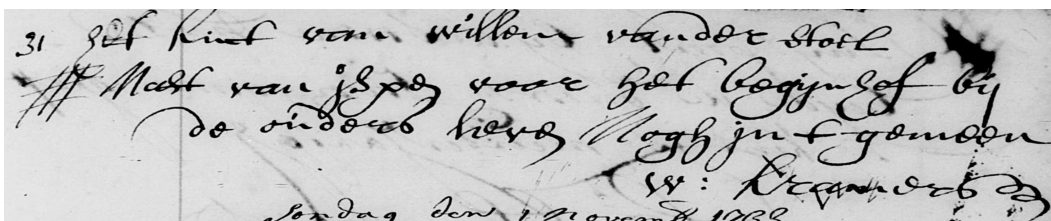 31 het kint van willem vander stoel
Naest van ijspen voor het begijnhof bij
de ouders leven Nogh jn t gemeen
w: Kramers
sondag den 1 November